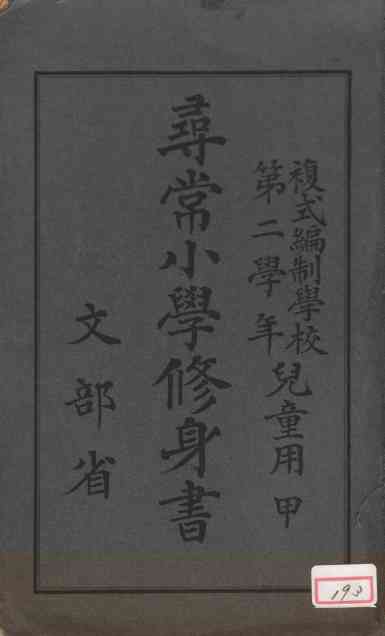 複式編制學校
第二學年
兒童用 甲
尋常小學修身書
文部省
193